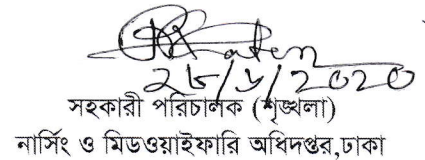 ২৮/৬/২০২০
সহকারী পরিচালক (শৃঙ্খলা)
নার্সিং ও মিডওয়াইফারি অধিদপ্তর,ঢাকা